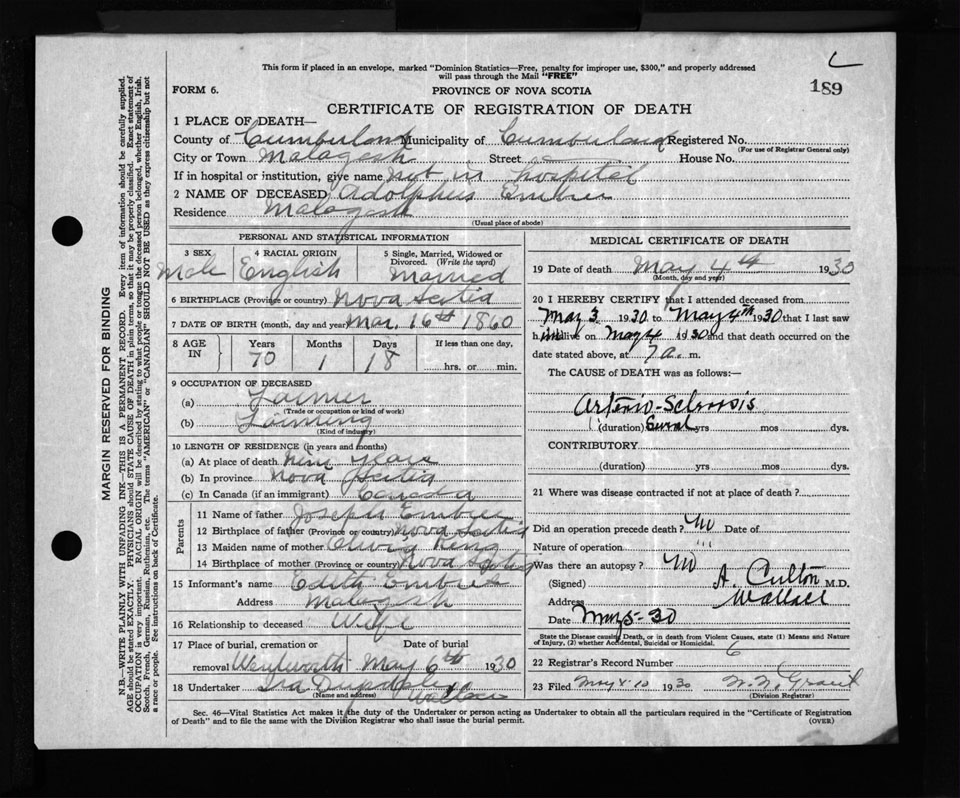 This form if placed in an envelope, marked "Dominion Statistics—Free, penalty for improper use, $300," and properly addressed
will pass through the Mail "FREE"
189
FORM 6.
PROVINCE OF NOVA SCOTIA
CERTIFICATE OF REGISTRATION OF DEATH
1 PLACE OF DEATH—
County of Cumberland Municipality of Cumberland Registered No.
(For use of Registrar General only)
City or Town Malagash Street House No.
If in hospital or institution, give name not in hospital
2 NAME OF DECEASED Adolphus Embree
Residence Malagash
(Usual place of abode)
PERSONAL AND STATISTICAL INFORMATION
3 SEX 4 RACIAL ORIGIN 5 Single, Married, Widowed or
Divorced. (Write the word)
Male English Married
6 BIRTHPLACE (Province or country) Nova Scotia
7 DATE OF BIRTH (month, day and year) Mar. 16th 1860
8 AGE IN Years Months Days If less than one day,
70 1 18 hrs. or min.
9 OCCUPATION OF DECEASED
(a) Farmer
(Trade or occupation or kind of work)
(b) Farming
(Kind of industry)
10 LENGTH OF RESIDENCE (in years and months)
(a) At place of death years
(b) In province Nova Scotia
(c) In Canada (if an immigrant) Canada
Parents
11 Name of father Joseph Embree
12 Birthplace of father (Province or country) Nova Scotia
13 Maiden name of mother Olivia King
14 Birthplace of mother (Province or country) Nova Scotia
15 Informant's name Edith Embree
Address Malagash
16 Relationship to deceased Wife
17 Place of burial, cremation or Date of burial
removal Wentworth May 6th 1930
18 Undertaker Ira
(Name and address) Wallace
MEDICAL CERTIFICATE OF DEATH
19 Date of death May 4th 1930
(Month, day and year)
20 I HEREBY CERTIFY that I attended deceased from
May 3 1930 to May 4th 1930 that I last saw
him alive on May 4 1930 and that death occurred on the
date stated above, at 7 a. m.
The CAUSE of DEATH was as follows:—
Arterio-Sclerosis
(duration) yrs mos dys.
CONTRIBUTORY
(duration) yrs mos dys.
21 Where was disease contracted if not at place of death?
Did an operation precede death? No Date of
Nature of operation "
Was there an autopsy? No
(Signed) A. Culton M.D.
Address Wallace
Date May 5-30
State the Disease causing Death, or in death from Violent Causes, state (1) Means and Nature
of Injury, (2) whether Accidental, Suicidal or Homicidal.
22 Registrar's Record Number 6
23 Filed May 10 1930 Grant
(Division Registrar)
Sec. 46—Vital Statistics Act makes it the duty of the Undertaker or person acting as Undertaker to obtain all the particulars required in the "Certificate of Registration
of Death" and to file the same with the Division Registrar who shall issue the burial permit. (OVER)
MARGIN RESERVED FOR BINDING
N.B.—WRITE PLAINLY WITH UNFADING INK—THIS IS A PERMANENT RECORD. Every item of information should be carefully supplied.
AGE should be stated EXACTLY. PHYSICIANS should STATE CAUSE OF DEATH in plain terms, so that it may be properly classified. Exact statement of
OCCUPATION is very important. RACIAL ORIGIN will be described by stating to what people or tongue the deceased person belonged, whether English, Irish,
Scotch, French, German, Russian, Ruthenian, etc. The terms "AMERICAN" or "CANADIAN" SHOULD NOT BE USED as they express citizenship but not
a race or people. See instructions on back of Certificate.